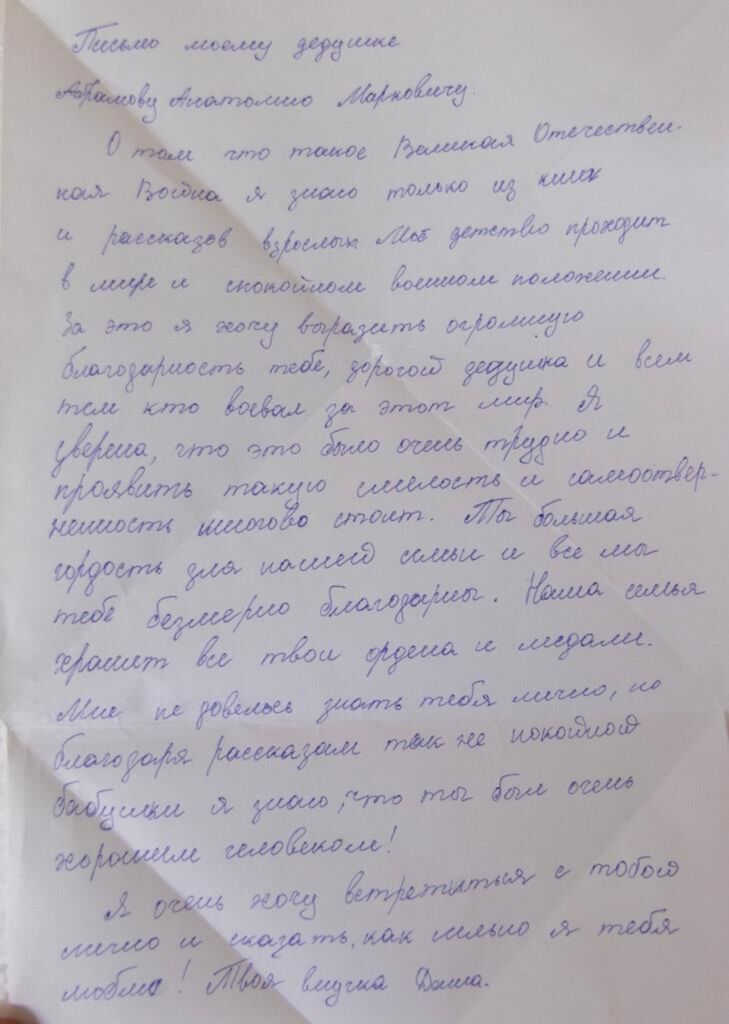 Письмо моему дедушке
Абрамову Анатолию Марковичу.
О том что такое Великая Отечествен-
ная Война я знаю только из книг
и рассказов взрослых. Моё детство проходит
в мире и спокойном военном положении.
За это я хочу выразить огромную
благодарность тебе, дорогой дедушка и всем
тем кто воевал за этот мир. Я
уверена, что это было очень трудно и
проявить такую смелость и самоотвер-
женность многово стоит. Ты большая
гордость для нашей семьи и все мы
тебе безмерно благодарны. Наша семья
хранит все твои ордена и медали.
Мне не довелось знать тебя лично, но
благодаря рассказам так же покойной
бабушки я знаю, что ты был очень
хорошим человеком!
Я очень хочу встретиться с тобой
лично и сказать, как сильно я тебя
люблю! Твоя внучка Даша.